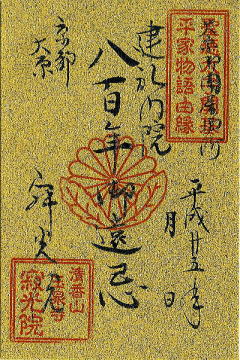 平家物語由縁
建礼門院
八百年御遠忌
京都
大原
平成廿五年
月
日
拝観
清香山
玉泉寺
寂光院